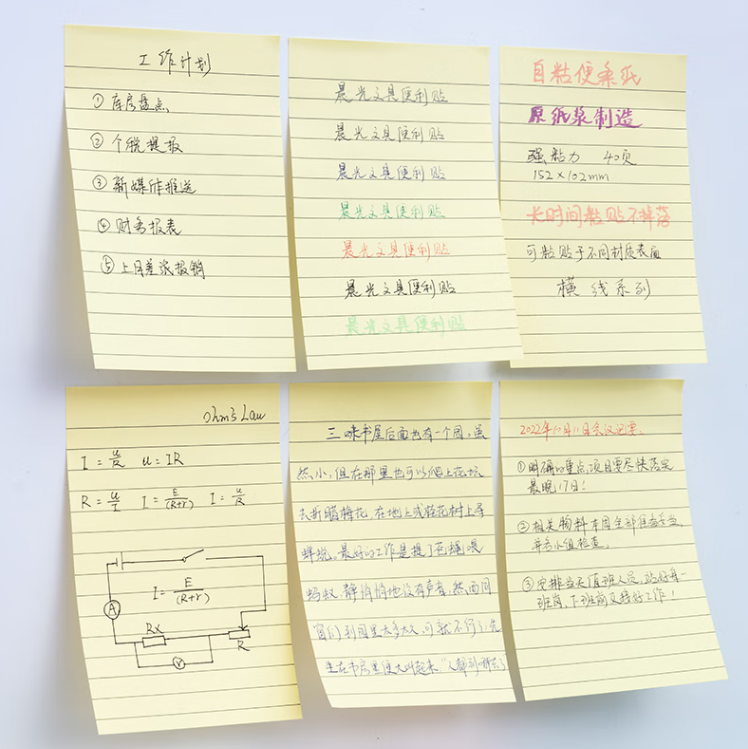 工作计划
①库房盘点
②个税提报
③新媒体推送
④财务报表
⑤上月差旅报销
晨光文具便利贴
晨光文具便利贴
晨光文具便利贴
晨光文具便利贴
晨光文具便利贴
晨光文具便利贴
晨光文具便利贴
自粘便条纸
原纸浆制造
强粘力 40页
152×102mm
长时间粘贴不掉落
可粘贴于不同材质表面
横线系列
Ohm's Law
I=u/R u=IR
R=u/I I=E/(R+r) I=u/R
I=E/(R+r)
A
Rx
R
V
三味书屋后面也有一个园,虽
然小,但在那里也可以爬上花坛
去折腊梅花,在地上或桂花树上寻
蝉蜕。最好的工作是捉了苍蝇喂
蚂蚁,静悄悄地没有声音。然而同
窗们到园里太多太久,可就不行了,先
生在书房里便大叫起来:“人都到哪去了
2022年10月11日会议记要。
①明确的重点项目要尽快落实
最晚17日!
②相关物料本周全部准备妥当,
并各小组检查。
③安排当天值班人员,站好每一
班岗,下班前交接好工作!